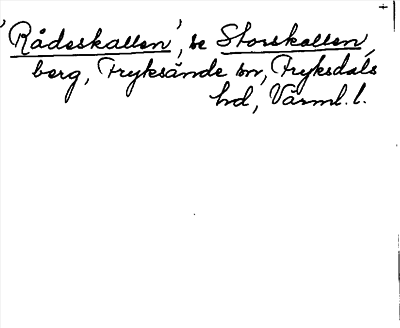 'Rådeskallen', se Storskallen,
berg, Fryksände sn, Fryksdals
hd, Värml. l.